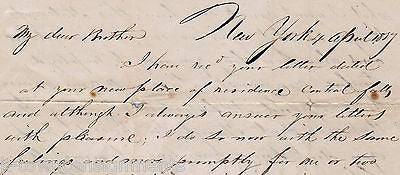 New York 4 April 1847
My dear Brother
I have recd your letter dated
at your new place of residence Central falls
and although I always answer your letters
with pleasure, I do so now with the same
feelings and more promptly for one or two